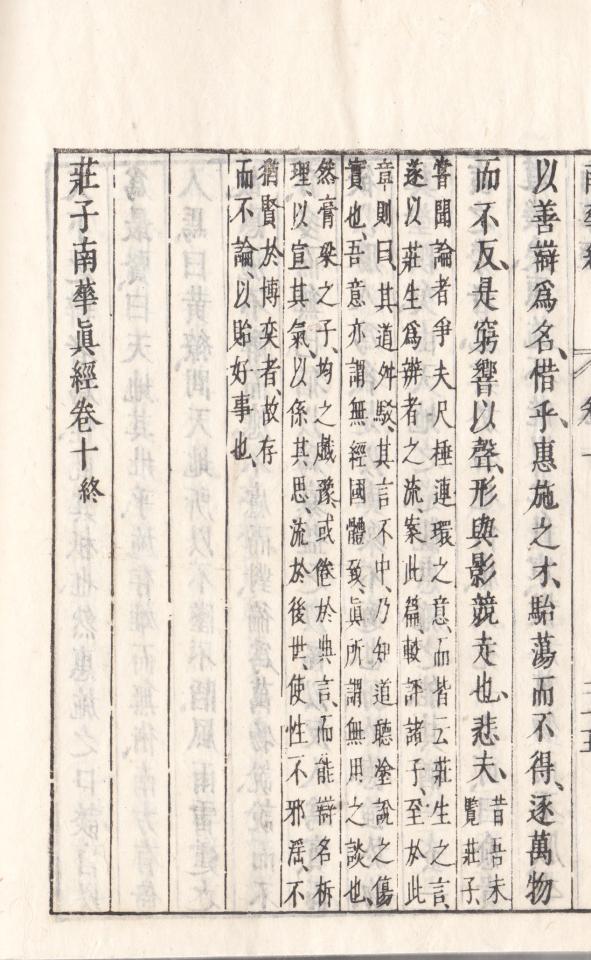 以善辯爲名、惜乎、惠施之才、駘蕩而不得、逐萬物
而不反、是窮響以聲、形與影競走也、悲夫、
昔吾未
覽莊子、
嘗聞論者爭夫尺棰連環之意、而皆云莊生之言、
遂以莊生爲辨者之流、案此篇、較評諸子、至於此
章則曰、其道舛駁、其言不中、乃知道聽塗說之傷
實也、吾意亦謂無經國體致、眞所謂無用之談也、
然膏粱之子、均之戲豫、或倦於典言、而能辯名析
理、以宣其氣、以係其思、流於後世、使性不邪淫、不
猶賢於博奕者、故存
而不論、以貽好事也、
莊子南華眞經卷十終